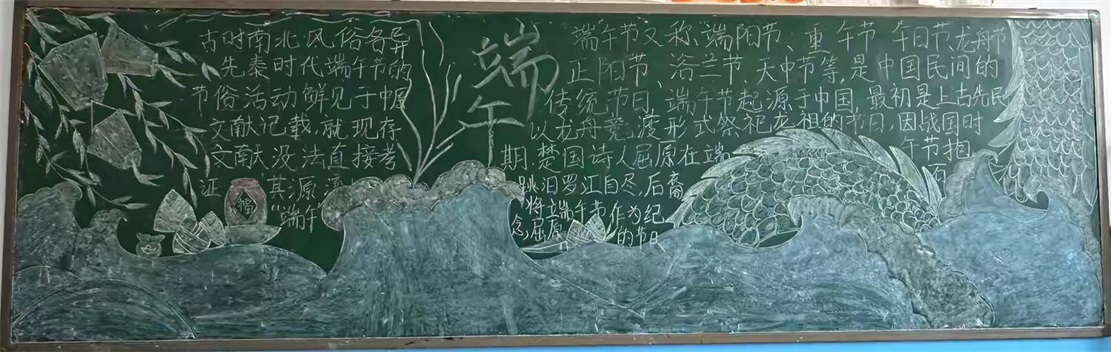 古时南北风俗各异
先秦时代端午节的
节俗活动鲜见于中原
文献记载,就现存
文献没法直接考
证 其源
"端午
端
午
端午节又称端阳节、重午节 午日节、龙舟节
正阳节、浴兰节、天中节等,是中国民间的
传统节日。端午节起源于中国,最初是上古先民
以龙舟竞渡形式祭祀龙祖的节日,因战国时
期楚国诗人屈原在端 午节抱
跳汨罗江自尽,后裔
将端午节作为纪
念屈原 的节日